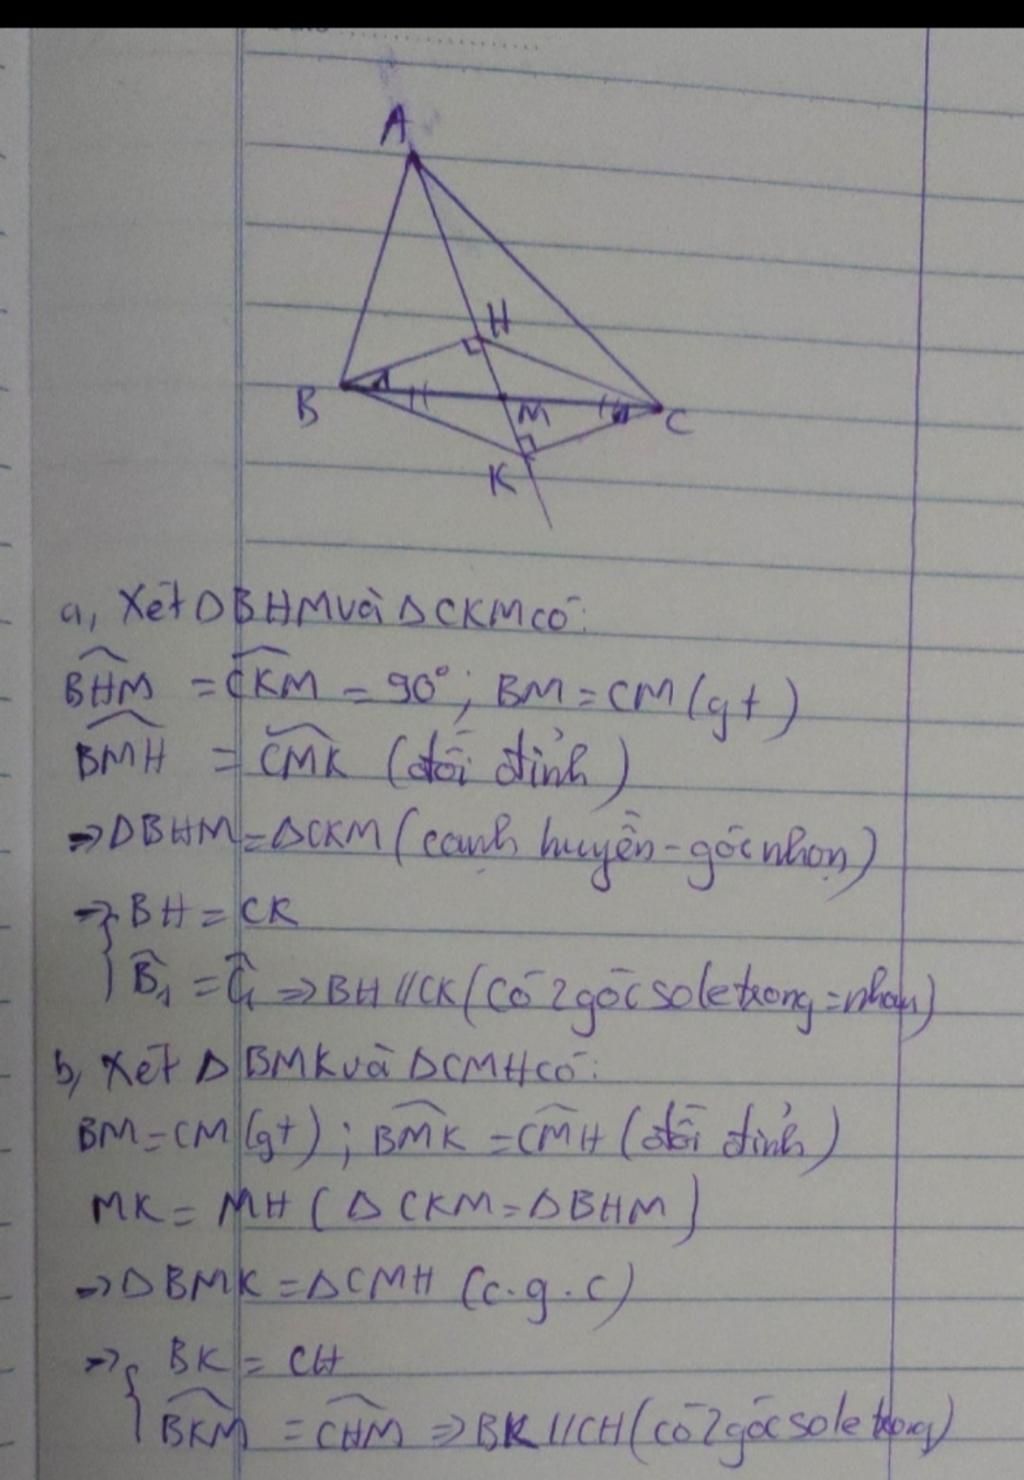 A
H
B
M
C
K
a, Xét ΔBHM và ΔCKM có:
BHM = CKM = 90°; BM = CM (gt)
BMH = CMK (đối đỉnh)
⇒ ΔBHM = ΔCKM (cạnh huyền - góc nhọn)
⇒ { BH = CK
B̂₁ = Ĉ₁ ⇒ BH // CK (Có 2 góc so le trong = nhau)
b, Xét ΔBMK và ΔCMH có:
BM = CM (gt); BMK = CMH (đối đỉnh)
MK = MH (ΔCKM = ΔBHM)
⇒ ΔBMK = ΔCMH (c.g.c)
⇒ { BK = CH
BKM = CHM ⇒ BK // CH (có 2 góc so le trong)